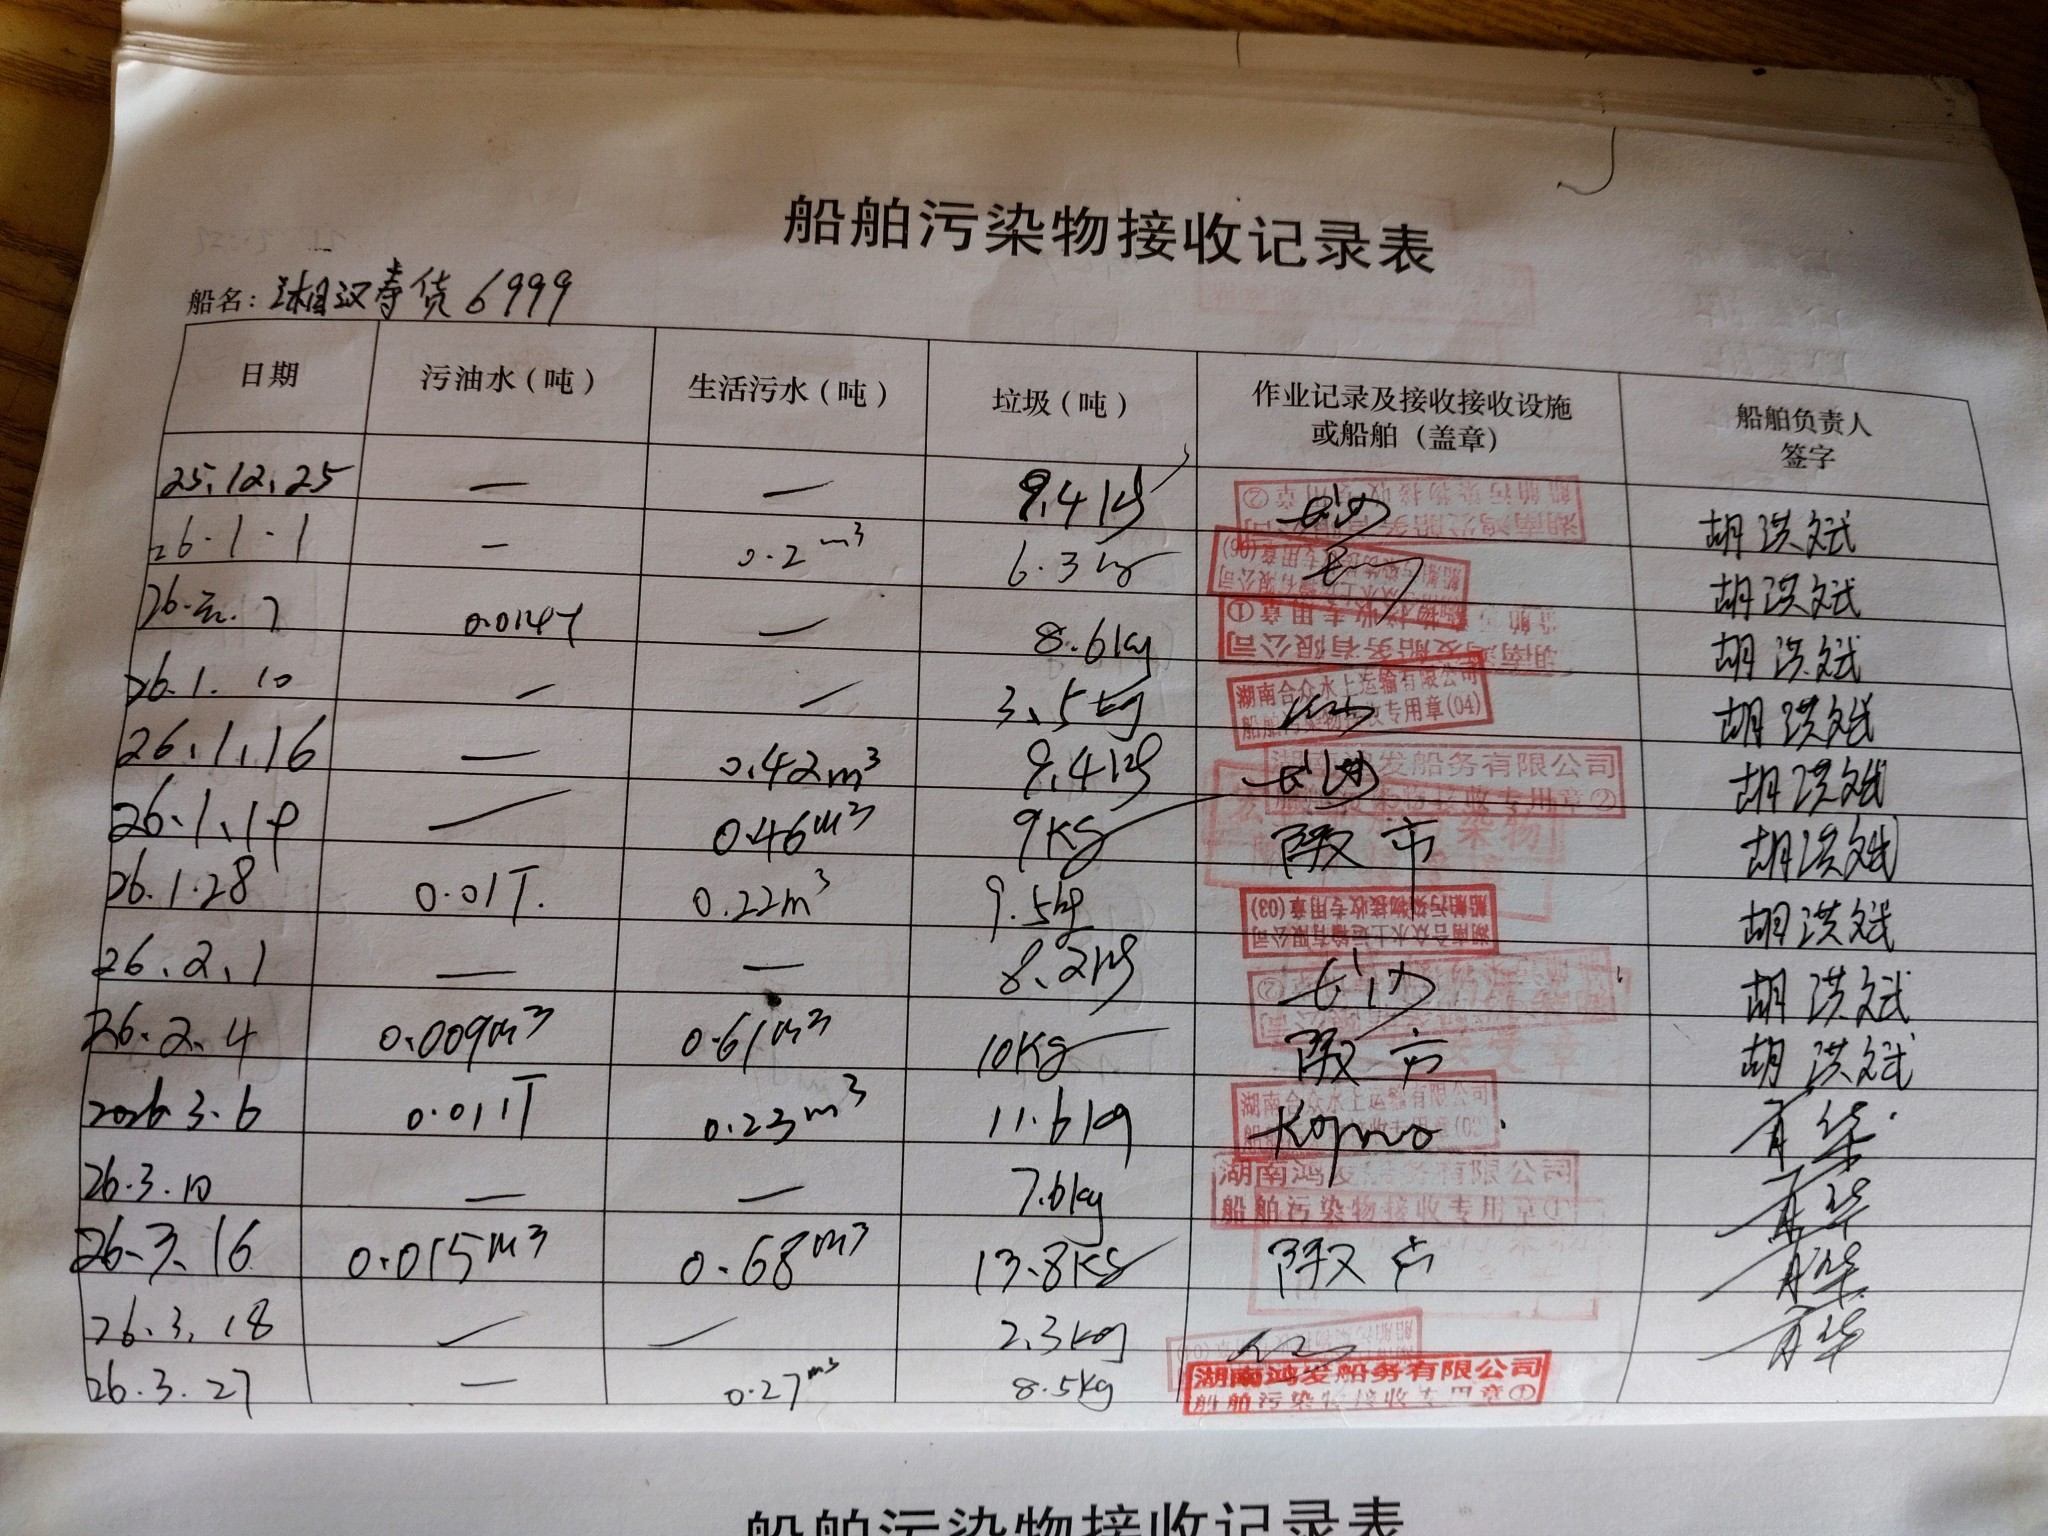 船舶污染物接收记录表
船名：湘汉寿货6999
日期 污油水（吨） 生活污水（吨） 垃圾（吨） 作业记录及接收接收设施或船舶（盖章） 船舶负责人签字
25.12.25 — — 9.4kg 长沙 胡洪斌
26.1.1 — 0.2m³ 6.3kg 胡洪斌
26.元.7 0.014T — 8.6kg 胡洪斌
26.1.10 — — 3.5kg 湖南合众水上运输有限公司 船舶污染物接收专用章(04) 胡洪斌
26.1.16 — 0.42m³ 9.4kg 长沙 湖南鸿发船务有限公司 胡洪斌
26.1.19 — 0.46m³ 9KG 陬市 胡洪斌
26.1.28 0.01T. 0.22m³ 9.5kg 湖南合众水上运输有限公司 船舶污染物接收专用章(03) 胡洪斌
26.2.1 — — 8.2kg 长沙 胡洪斌
26.2.4 0.009m³ 0.61m³ 10KG 陬市 胡洪斌
2026.3.6 0.011T 0.23m³ 11.6kg 湖南合众水上运输有限公司 肖华
26.3.10 — — 7.6kg 湖南鸿发船务有限公司 船舶污染物接收专用章① 肖华
26.3.16 0.015m³ 0.68m³ 13.8KG 陬市 肖华
26.3.18 — — 2.3kg 肖华
26.3.27 — 0.27m³ 8.5kg 湖南鸿发船务有限公司 船舶污染物接收专用章①
船舶污染物接收记录表